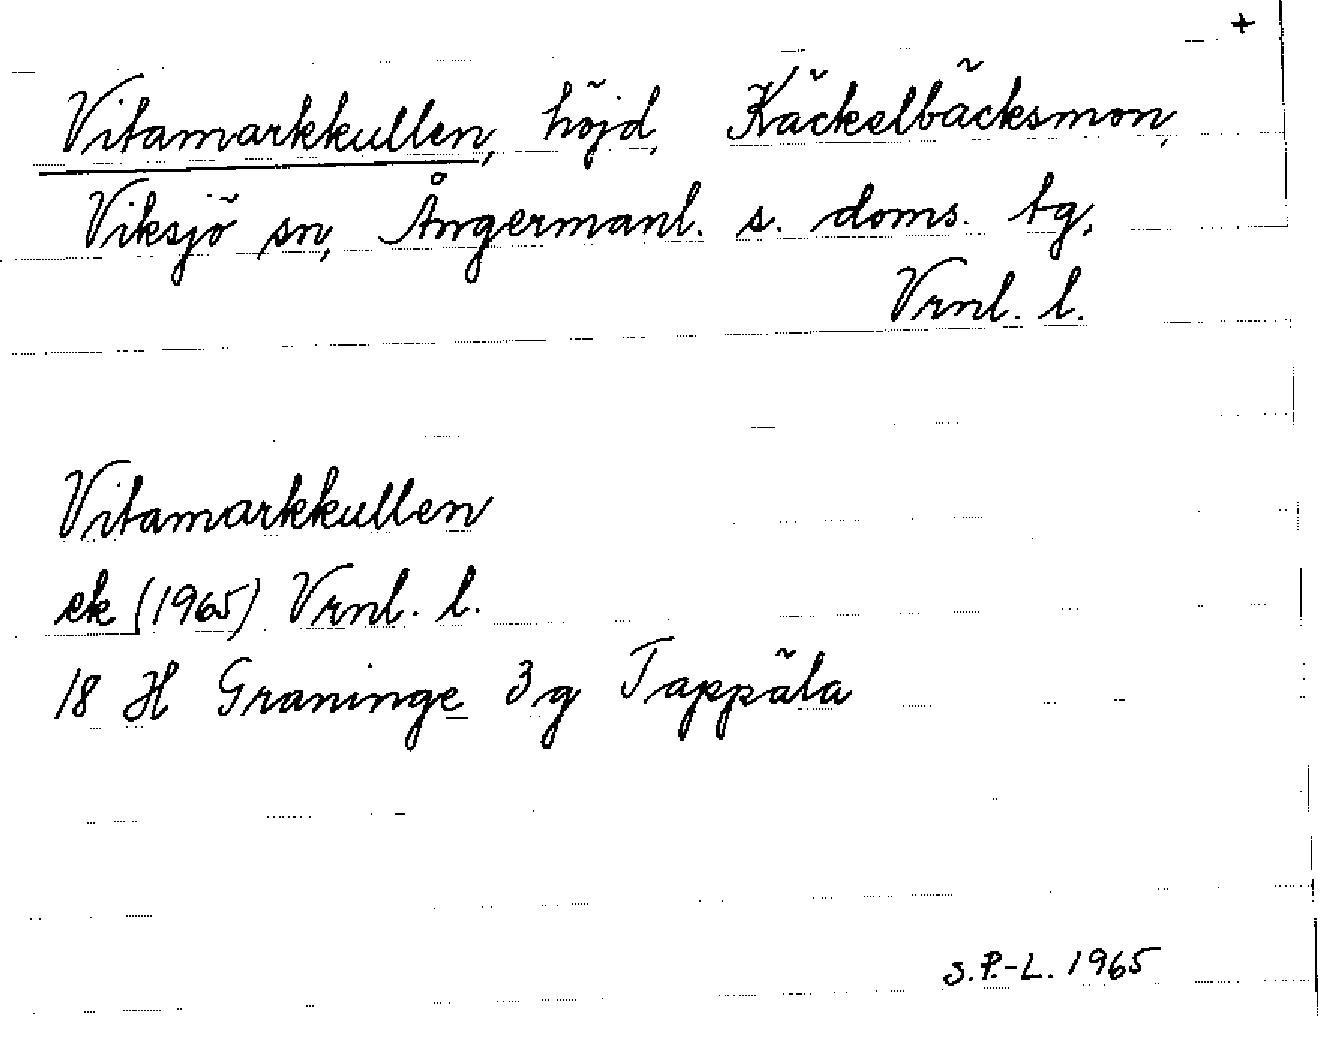 +
Vitamarkkullen, höjd, Käckelbäcksmon,
Viksjö sn, Ångermanl. s. doms. tg,
Vrnl. l.
Vitamarkkullen
ek (1965) Vrnl. l.
18 H Graninge 3 g Tappäla
S. P.-L. 1965